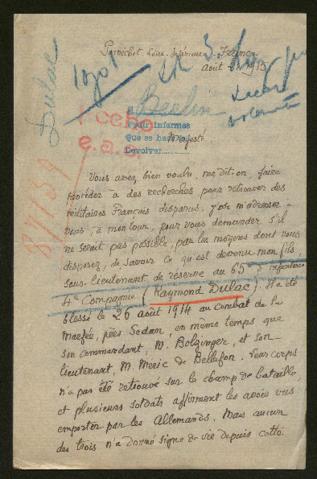 Loire Inférieure France
Août 1915
Dulac
Berlin
Para informes
que se ha
Devolver
Majesté
Vous avez bien voulu, me dit-on, faire
procéder à des recherches pour retrouver des
militaires Français disparus. J'ose m'adresser
vous à mon tour, pour vous demander s'il
ne serait pas possible, par les moyens dont vous
disposez, de savoir ce qu'est devenu mon fils
sous-lieutenant de réserve au 65e d'infanterie
4e Compagnie (Raymond Dulac) Il a été
blessé le 26 août 1914 au combat de la
Marfée, près Sedan, en même temps que
son commandant M. Bolzinger, et son
lieutenant, M. Meric de Bellefon. Leur corps
n'a pas été retrouvé sur le champ de bataille
et plusieurs soldats affirment les avoir vus
emportés par les Allemands. Mais aucun
des trois n'a donné signe de vie depuis cette